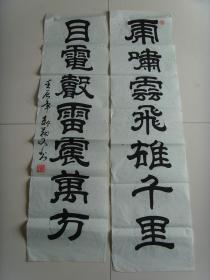 乕嘯雲飛雄千里
目電聲雷震萬方
壬辰年